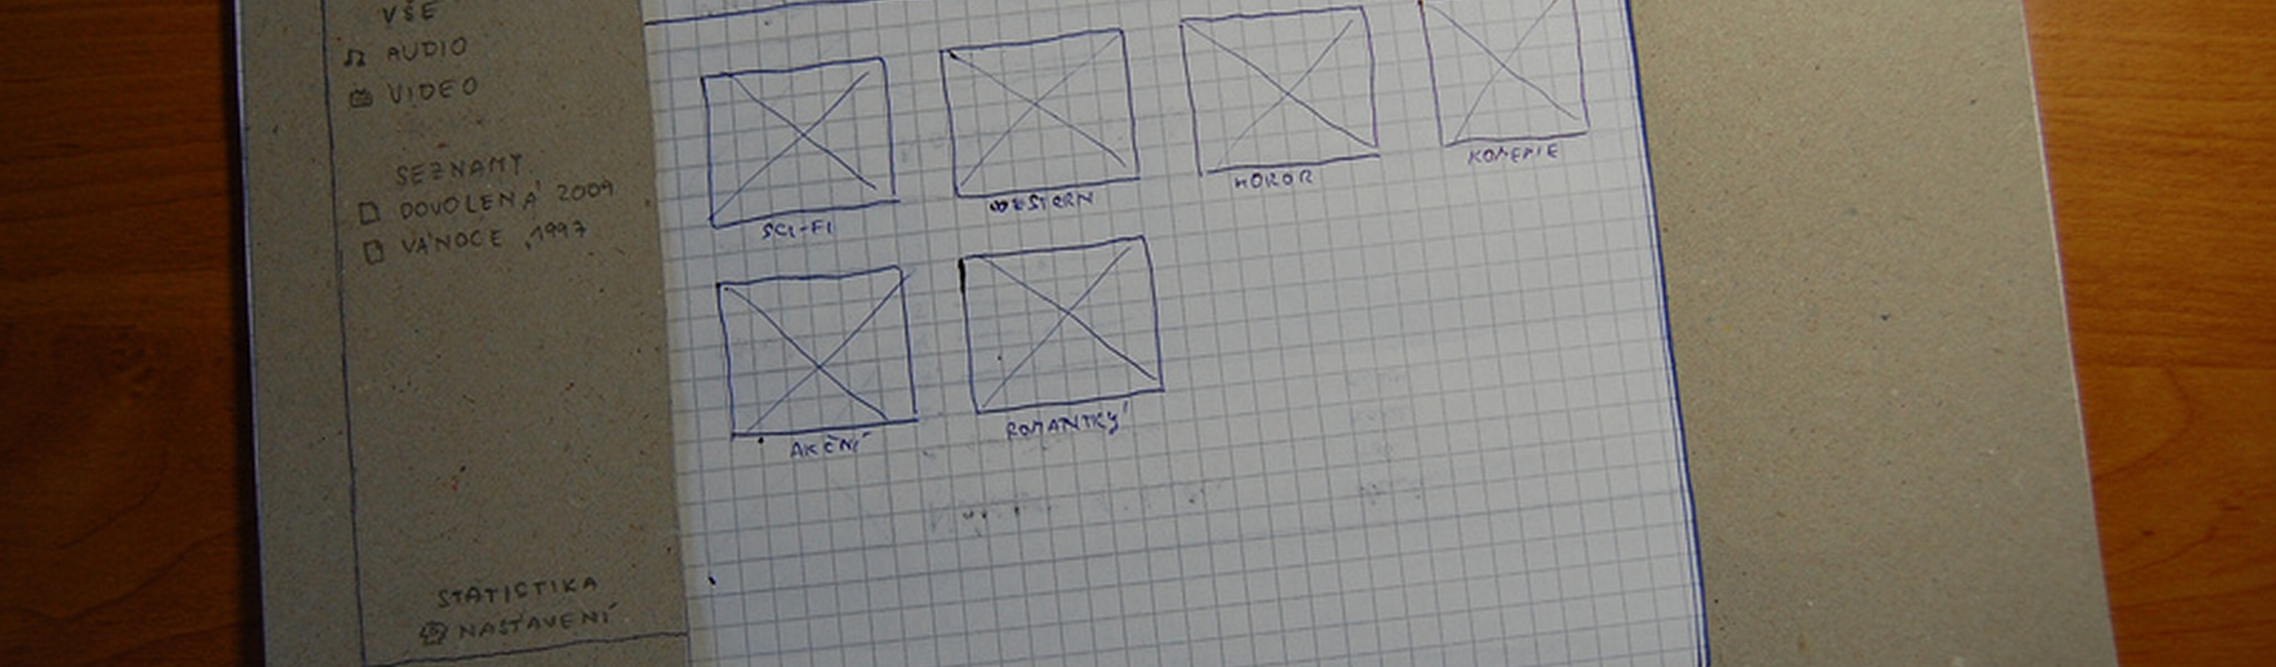 VŠE
AUDIO
VIDEO
SEZNAMY
DOVOLENÁ 2009
VÁNOCE 1997
STATISTIKA
NASTAVENÍ
SCI-FI
WESTERN
HOROR
KOMEDIE
AKČNÍ
ROMANTKÝ